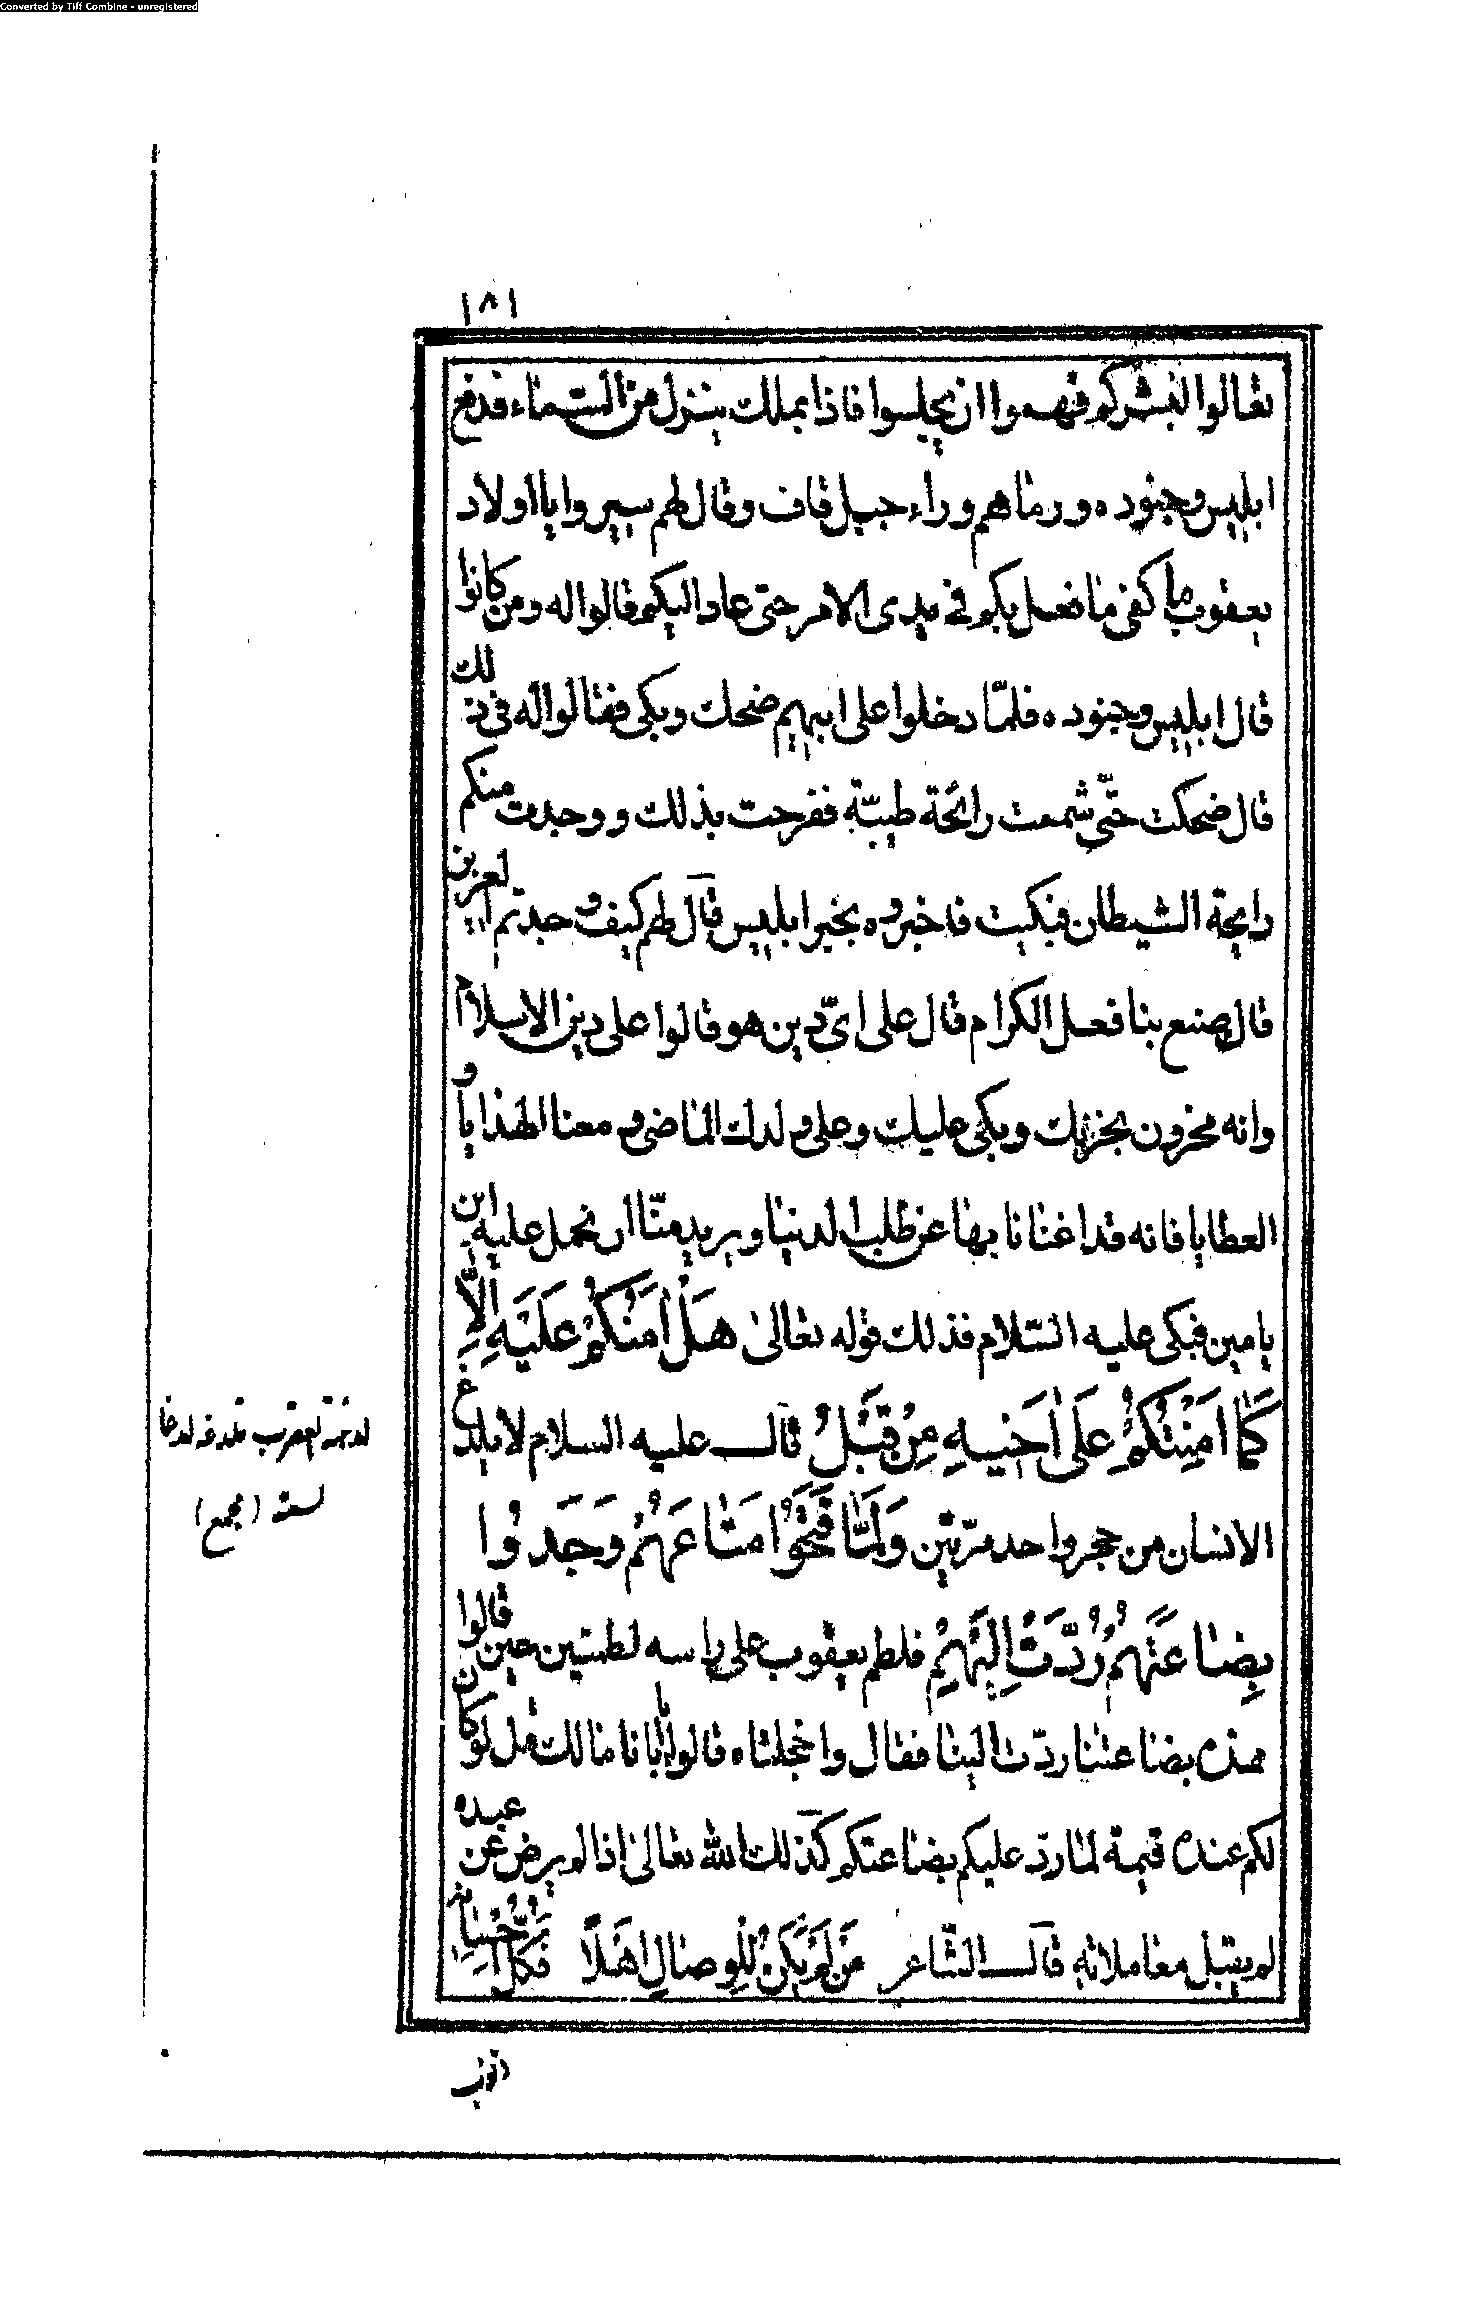 Converted by Tiff Combine - unregistered
١٨١
تعالوا لنبشركم فهموا ان يجلسوا فاذا بملك ينزل من السماء فدفع
ابليس وجنوده ورماهم وراء جبل قاف وقال لهم سيروا يا اولاد
يعقوب ما كفى ما فعل بكم فى بدى الامر حتى عاد اليكم قالوا له ومن كانوا
قال ابليس وجنوده فلمّا دخلوا على ابيهم ضحك وبكى فقالوا له فى ذلك
قال ضحكت حتّى شممت رائحة طيبّة ففرحت بذلك ووجدت منكم
رايحة الشيطان فبكيت فاخبروه بخبر ابليس قال لهم كيف وجدتم العزيز
قال صنع بنا فعل الكرام قال على اىّ دين هو قالوا على دين الاسلام
وانه محزون بحزنك وبكى عليك وعلى ولدك الماضى ومعنا الهذايا و
العطايا فانه قد اغنانا بها عن طلب الدنيا ويريد منّا ان نحمل عليه ابن
يامين فبكى عليه السّلام فذلك قوله تعالى هَلْ اٰمَنُكُمْ عَلَيْهِ اِلَّا
كَمٰا اَمِنْتُكُمْ عَلىٰ اَخيٖهِ مِنْ قَبْلُ قال عليه السلام لا يلدغ
الانسان من حجر واحد مرّتين وَلَمّٰا فَتَحُوْا مَتٰاعَهُمْ وَجَدُوا
بِضٰاعَتَهُمْ رُدَّتْ اِلَيْهِمْ فلطم يعقوب على راسه لطمتين حين قالوا
هذه بضاعتنا ردّت الينا فقال وا خجلتاه قالوا يا ابانا مالك قال لو كان
لكم عنده قيمة لما ردّ عليكم بضاعتكم كذلك الله تعالى اذا لم يرض عن عبده
لم يقبل معاملاته قال الشّاعر مَن لَمْ يَكُنْ لِلْوِصٰالِ اَهْلًا فَكُلُّ
لدغته العقرب تلدغه لدغا
لسعته (مجمع)
ذنوب